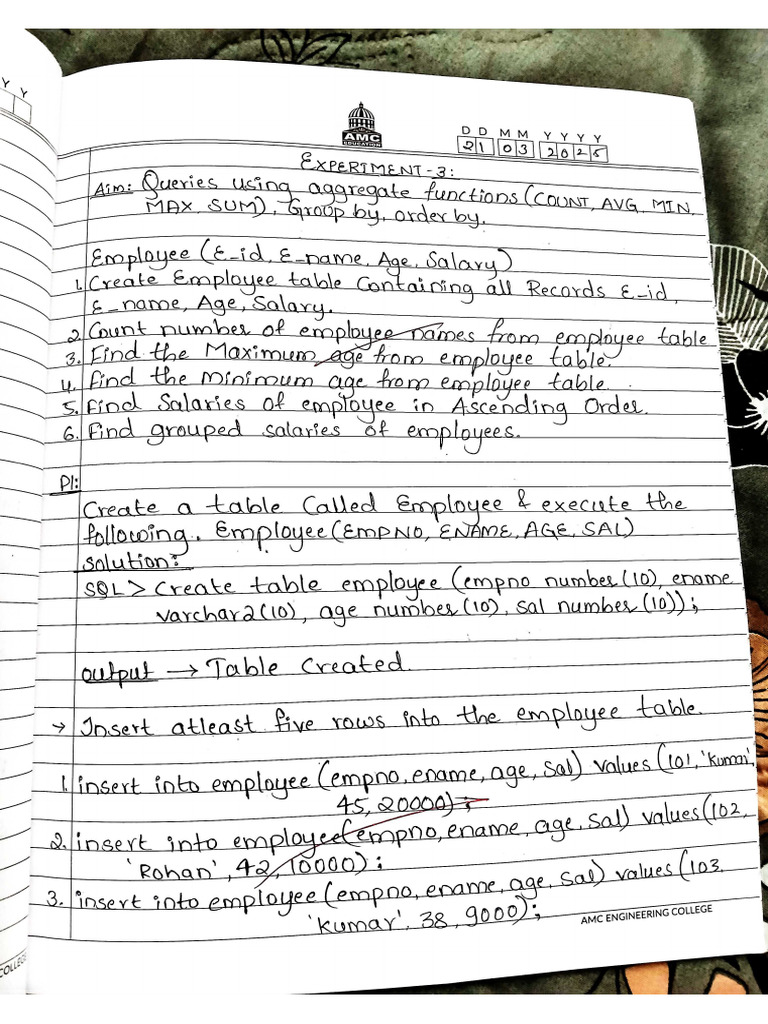 Y Y
AMC
EDUCATION
D D M M Y Y Y Y
21 03 2025
EXPERIMENT-3:
Aim: Queries using aggregate functions (COUNT, AVG, MIN,
MAX, SUM), Group by, order by.
Employee (E-id, E-name, Age, Salary)
1. Create Employee table Containing all Records E-id,
E-name, Age, Salary.
2. Count number of employee names from employee table
3. Find the Maximum age from employee table.
4. Find the minimum age from employee table.
5. Find Salaries of employee in Ascending Order.
6. Find grouped salaries of employees.
P1:
Create a table Called Employee & execute the
following. Employee(EMPNO, ENAME, AGE, SAL)
solution:
SQL> Create table employee (empno number(10), ename
varchar2(10), age number(10), sal number(10));
output → Table Created.
→ Insert atleast five rows into the employee table.
1. insert into employee (empno, ename, age, sal) values (101, 'Kumar',
45, 20000);
2. insert into employee(empno, ename, age, sal) values(102,
'Rohan', 42, 10000);
3. insert into employee (empno, ename, age, sal) values (103,
'kumar', 38, 9000);
AMC ENGINEERING COLLEGE
COLLEGE